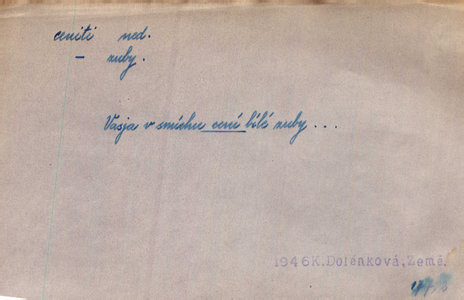 ceniti ned.
– zuby.
Vasja v smíchu cení bílé zuby ...
1946K.Dolénková,Země.